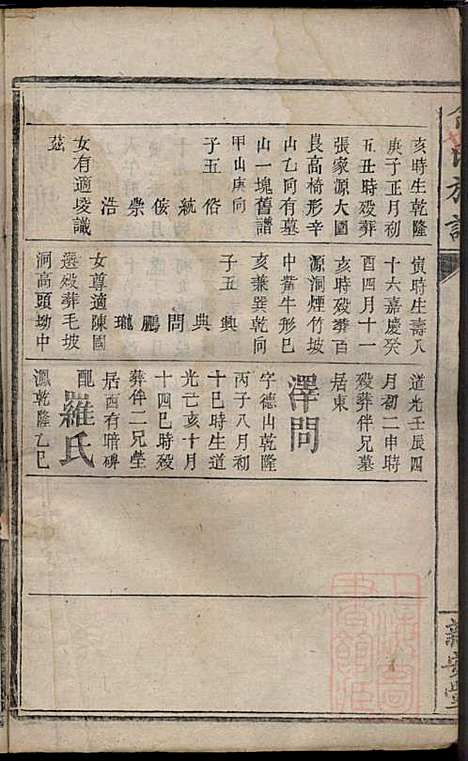 亥時生乾隆
庚子正月初
五丑時歿葬
張家源大園
艮高椅形辛
山乙向有墓
山一塊舊譜
甲山庚向
子五
俗
統
俊
崇
浩
女有適堎議
茲
寅時生壽八
十六嘉慶癸
酉四月十一
亥時歿葬百
源洞煙竹坡
中嘴牛形巳
亥兼巽乾向
子五
興
典
問
鵬
瓏
女尊適陳國
選歿葬毛坡
洞高頭坳中
道光壬辰四
月初二申時
歿葬伴兄墓
居東
澤問
字德山乾隆
丙子八月初
十巳時生道
光乙亥十月
十四巳時歿
葬伴二兄塋
居西有暗碑
配羅氏
鳳乾隆乙巳
氏族譜